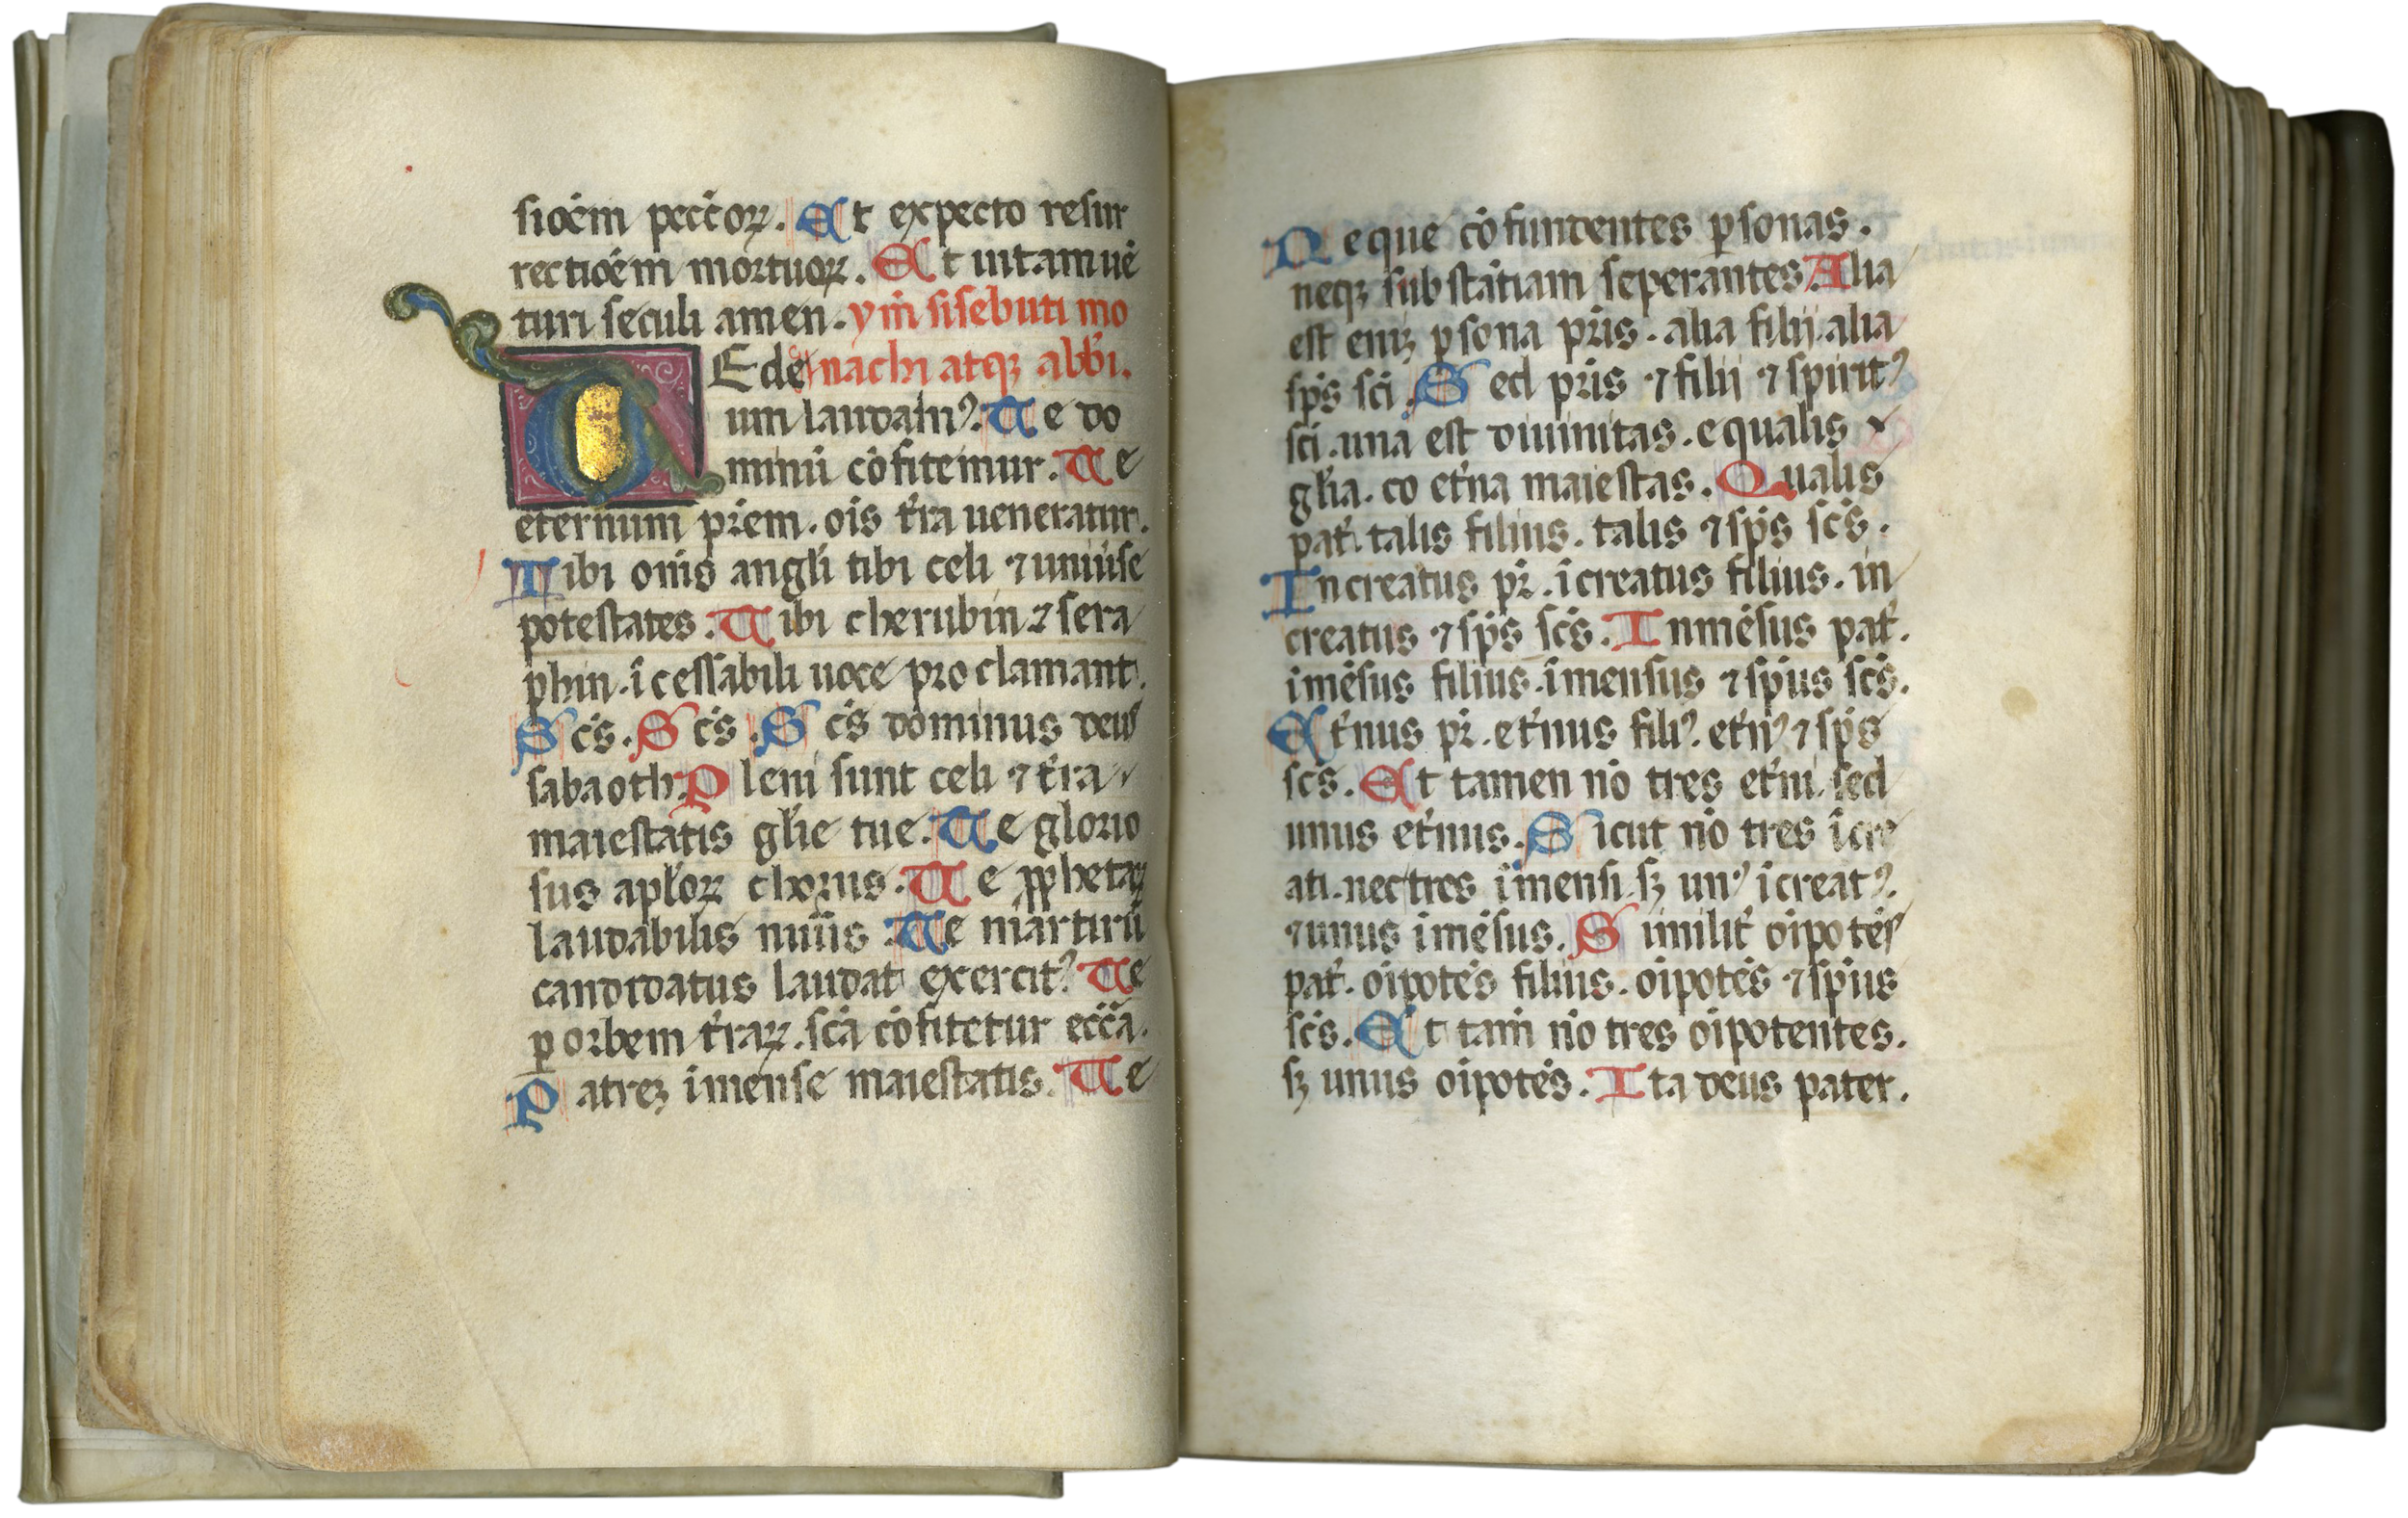 sioēm peccōꝝ. Et expecto resur
rectioēm mortuoꝝ. Et uitam uē
turi seculi amen. ymˀ sisebuti mo
TE de nachi atqꝫ abbˀi.
um laudamꝰ. Te do
minū cōfitemur. Te
eternum prēm. oīs tˀra ueneratur.
Tibi om̄s angˀli tibi celi ⁊ uniūse
potestates. Tibi cherubin ⁊ sera
phin. īcessabili uoce proclamant.
Sc̄s. Sc̄s. Sc̄s dominus deus
sabaoth. Pleni sunt celi ⁊ tˀra
maiestatis glˀie tue. Te glorio
sus aplˀoꝝ chorus. Te ꝓphetaꝝ
laudabilis nūūs. Te martirū
candidatus laudat exercitꝰ. Te
ꝑ orbem tˀraꝝ. scā cōfitetur ecc̄a.
Patreꝫ īmense maiestatis. Te
Neque cōfundentes ꝑsonas.
neqꝫ substātiam seperantes. Alia
est eniꝫ ꝑsona prīs. alia filii. alia
sp̄s sc̄i. Sed prīs ⁊ filii ⁊ spiritꝰ
sc̄i. una est diuinitas. equalis
glˀia. co etˀna maiestas. Qualis
patˀ. talis filius. talis ⁊ sp̄s sc̄s.
Increatus pr̄. īcreatus filius. in
creatus ⁊ sp̄s sc̄s. Inmēsus patˀ.
īmēsus filius. īmensus ⁊ sp̄us sc̄s.
Etˀnus pr̄. etˀnus filiꝰ. etˀnꝰ ⁊ sp̄s
sc̄s. Et tamen nō tres etˀni. sed
unus etˀnus. Sicut nō tres īcre
ati. nec tres īmensi. sꝫ unꝰ īcreatꝰ.
⁊ unus īmēsus. Similitˀ oīpotēs
patˀ. oīpotēs filius. oīpotēs ⁊ sp̄us
sc̄s. Et tam̄ nō tres oīpotentes.
sꝫ unus oīpotēs. Ita deus pater.